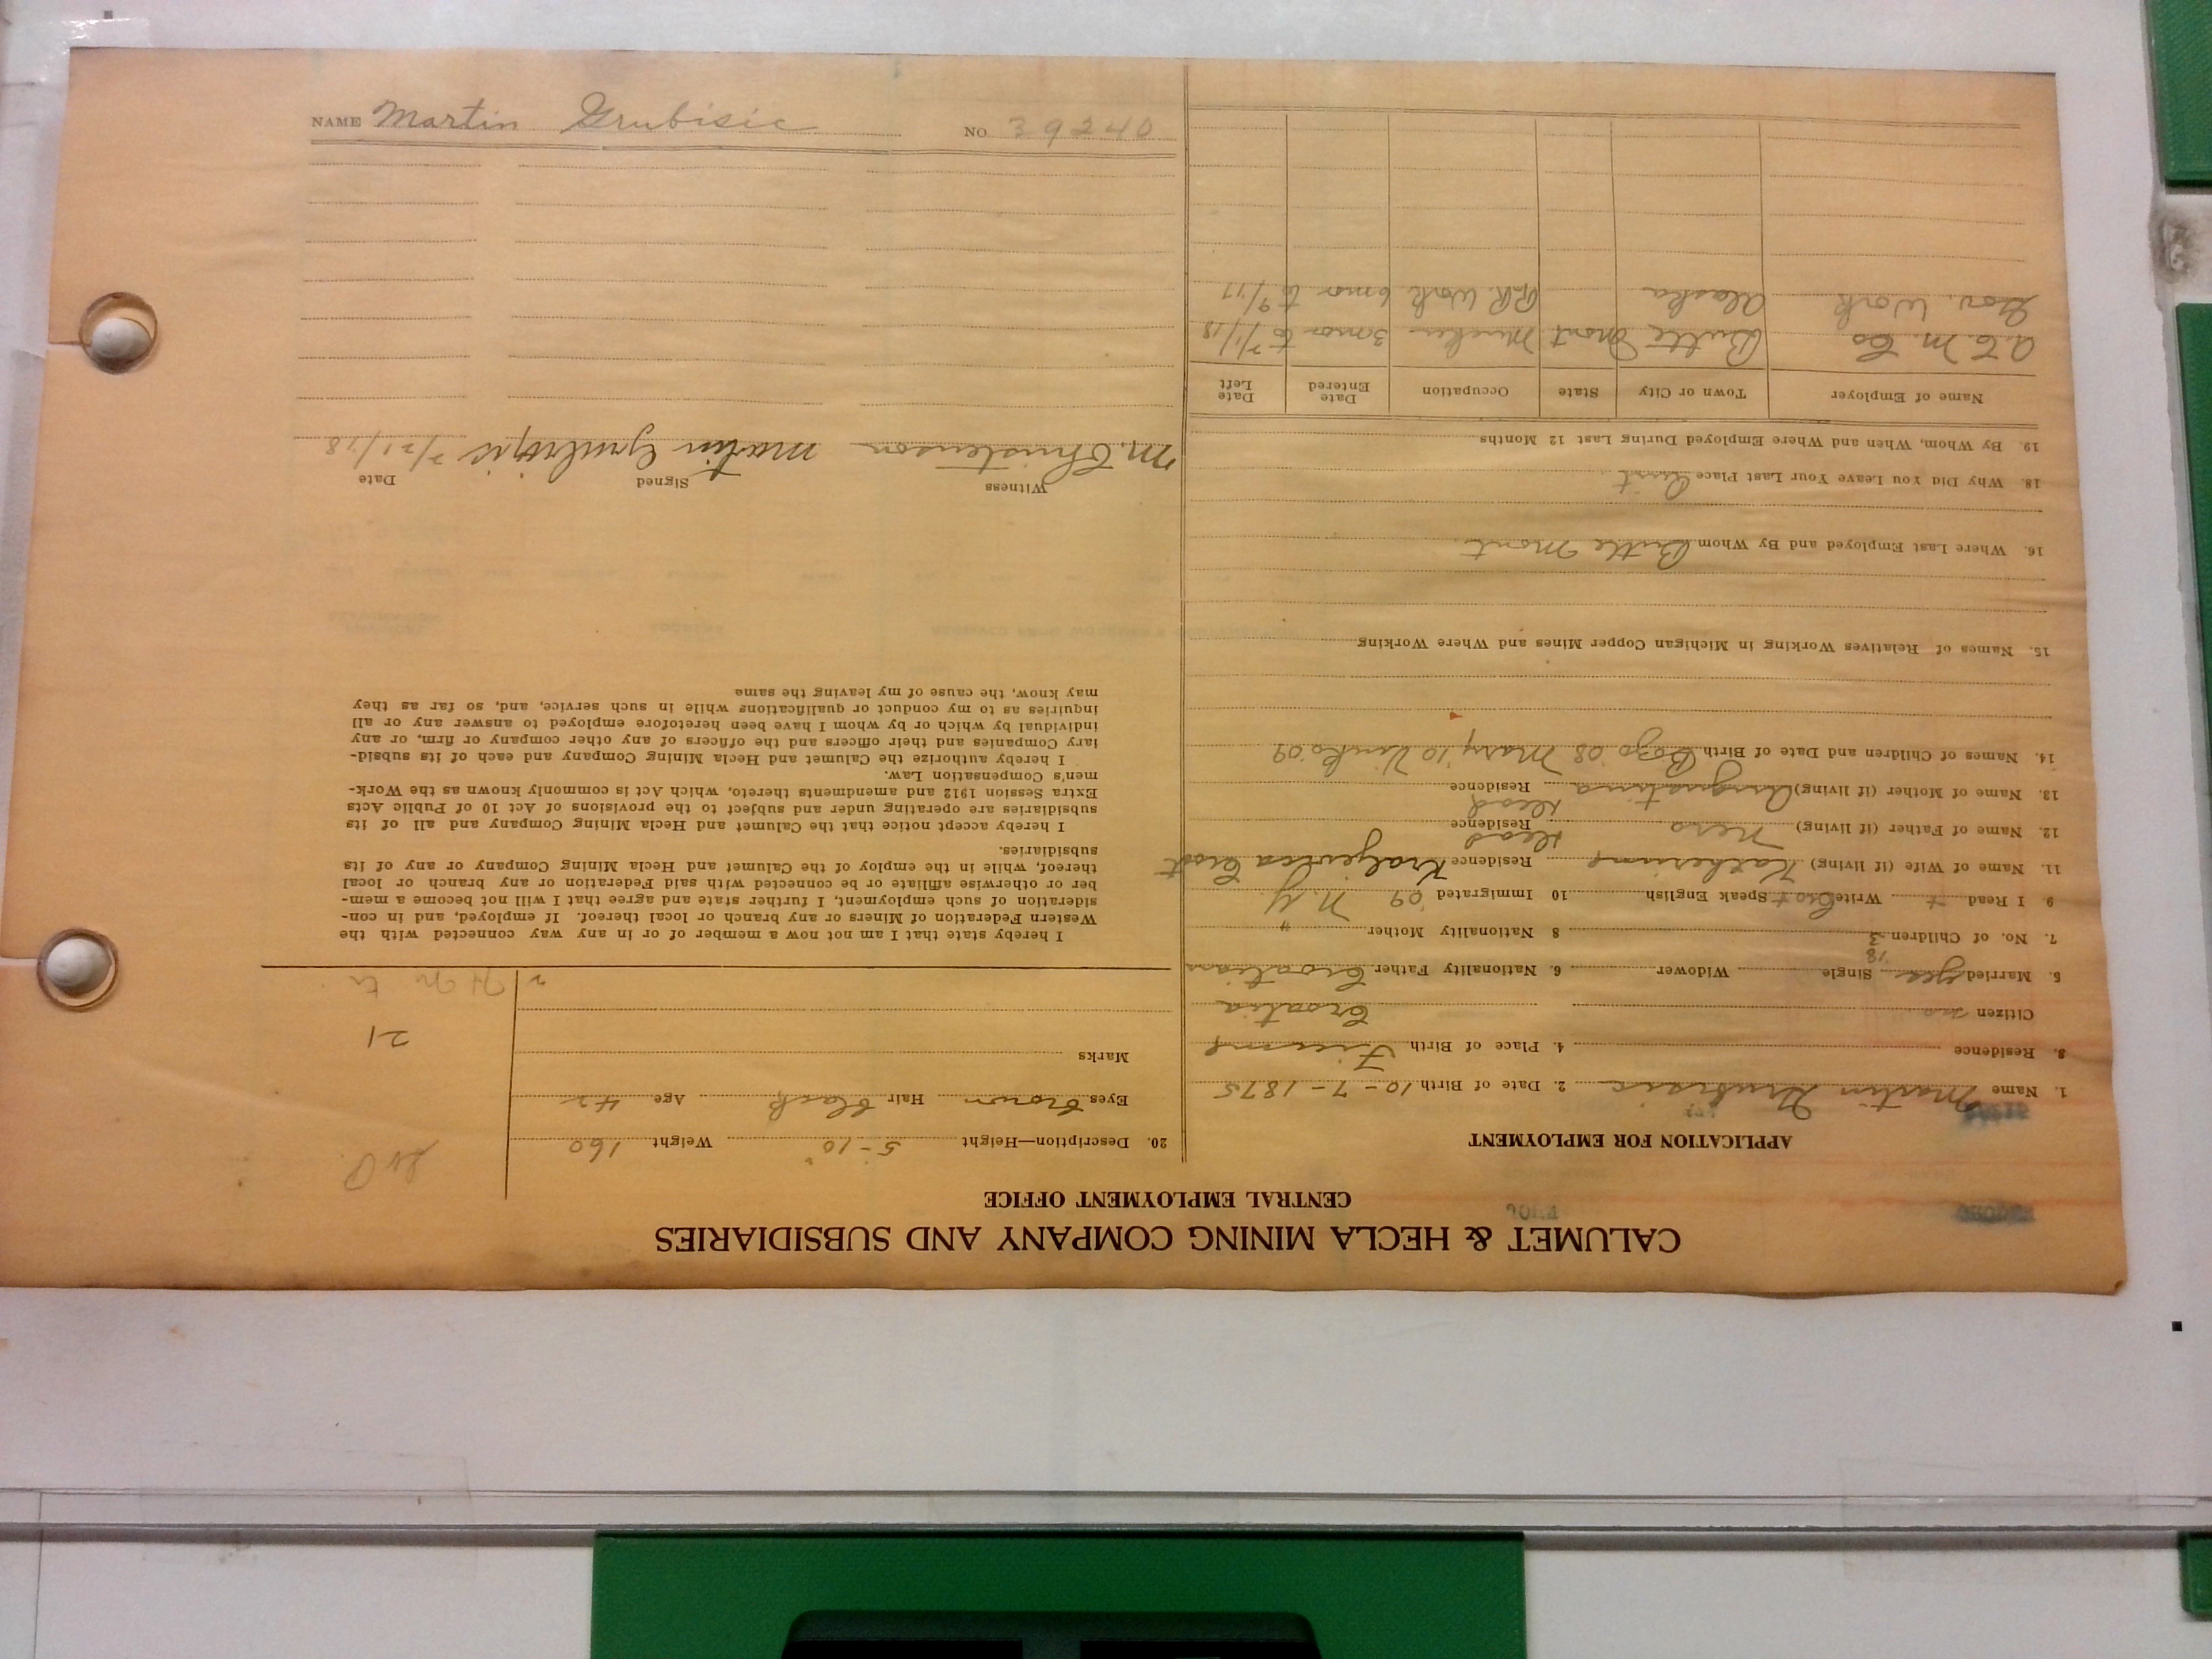 CALUMET & HECLA MINING COMPANY AND SUBSIDIARIES
CENTRAL EMPLOYMENT OFFICE
APPLICATION FOR EMPLOYMENT
1. Name Martin Grubisic 2. Date of Birth 10-7-1875
3. Residence 4. Place of Birth Fiume
Citizen no Croatia
5. Married yes Single Widower 6. Nationality Father Croatian
18
7. No. of Children 3 8 Nationality Mother "
9. I Read + Write Croat Speak English 10 Immigrated '09 N.Y.
11. Name of Wife (if living) Katherine Residence Kraljevica Croat
12. Name of Father (if living) Nero Residence dead
13. Name of Mother (if living) Augustina Residence dead
14. Names of Children and Date of Birth Bozo '08 Mary '10 Vinko '09
15. Names of Relatives Working in Michigan Copper Mines and Where Working
16. Where Last Employed and By Whom Butte Mont.
18. Why Did You Leave Your Last Place Quit
19. By Whom, When and Where Employed During Last 12 Months
Name of Employer Town or City State Occupation Date Entered Date Left
A.C. M. Co Butte Mont Mucker 3 mos to 7/1/18
Gov. Work Alaska R.R. Work 6 mos to 9/17
20. Description—Height 5-10" Weight 160
Eyes brown Hair black Age 42
Marks
21
I hereby state that I am not now a member of or in any way connected with the
Western Federation of Miners or any branch or local thereof. If employed, and in con-
sideration of such employment, I further state and agree that I will not become a mem-
ber or otherwise affiliate or be connected with said Federation or any branch or local
thereof, while in the employ of the Calumet and Hecla Mining Company or any of its
subsidiaries.
I hereby accept notice that the Calumet and Hecla Mining Company and all of its
subsidiaries are operating under and subject to the provisions of Act 10 of Public Acts
Extra Session 1912 and amendments thereto, which Act is commonly known as the Work-
men's Compensation Law.
I hereby authorize the Calumet and Hecla Mining Company and each of its subsid-
iary Companies and their officers and the officers of any other company or firm, or any
individual by which or by whom I have been heretofore employed to answer any or all
inquiries as to my conduct or qualifications while in such service, and, so far as they
may know, the cause of my leaving the same
Witness Signed Date
M. Christenson Martin Grubisic 7/21/18
NAME Martin Grubisic NO 39240